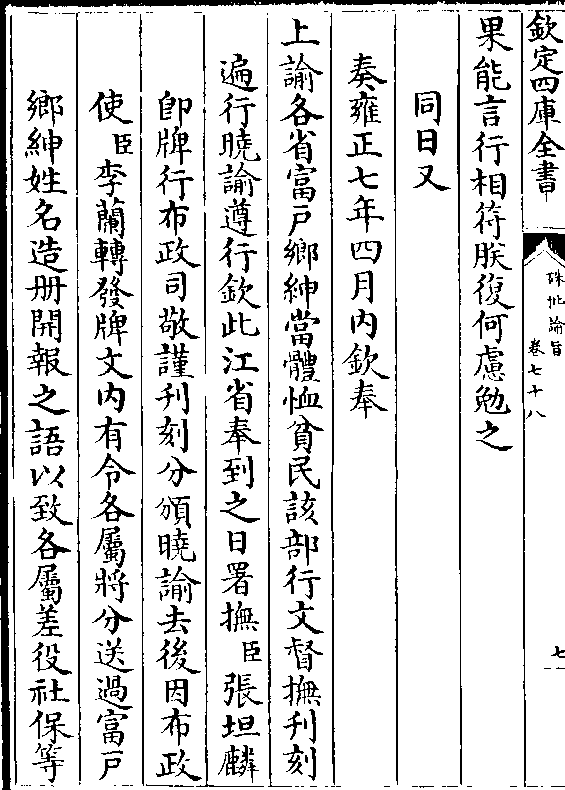 欽定四庫全書
硃批諭旨
卷七十八
七
果能言行相符朕復何慮勉之
同日又
奏雍正七年四月内欽奉
上諭各省富戸鄉紳當體恤貧民該部行文督撫刋刻
遍行曉諭遵行欽此江省奉到之日署撫臣張坦麟
即牌行布政司敬謹刋刻分頒曉諭去後因布政
使臣李蘭轉發牌文内有令各屬將分送過富戸
鄉紳姓名造册開報之語以致各屬差役社保等